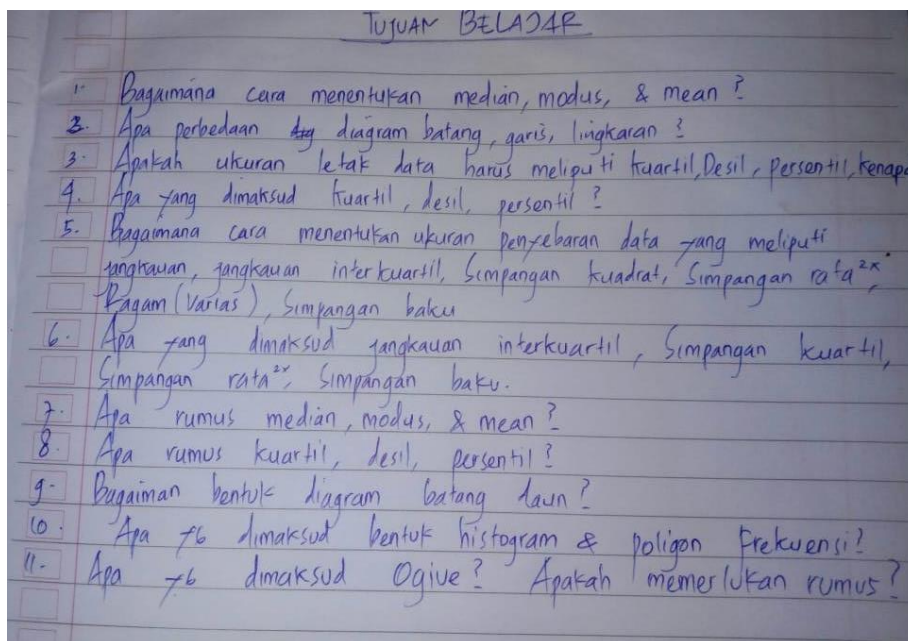 TUJUAN BELAJAR
1. Bagaimana cara menentukan median, modus, & mean?
2. Apa perbedaan diagram batang, garis, lingkaran?
3. Apakah ukuran letak data harus meliputi kuartil, Desil, persentil, kenapa
4. Apa yang dimaksud kuartil, desil, persentil?
5. Bagaimana cara menentukan ukuran penyebaran data yang meliputi
jangkauan, jangkauan interkuartil, Simpangan kuadrat, Simpangan rata²ˣ,
Ragam (Varias), Simpangan baku
6. Apa yang dimaksud jangkauan interkuartil, Simpangan kuartil,
Simpangan rata²ˣ, Simpangan baku.
7. Apa rumus median, modus, & mean?
8. Apa rumus kuartil, desil, persentil?
9. Bagaiman bentuk diagram batang daun?
10. Apa yg dimaksud bentuk histogram & poligon Frekuensi?
11. Apa yg dimaksud Ogive? Apakah memerlukan rumus?